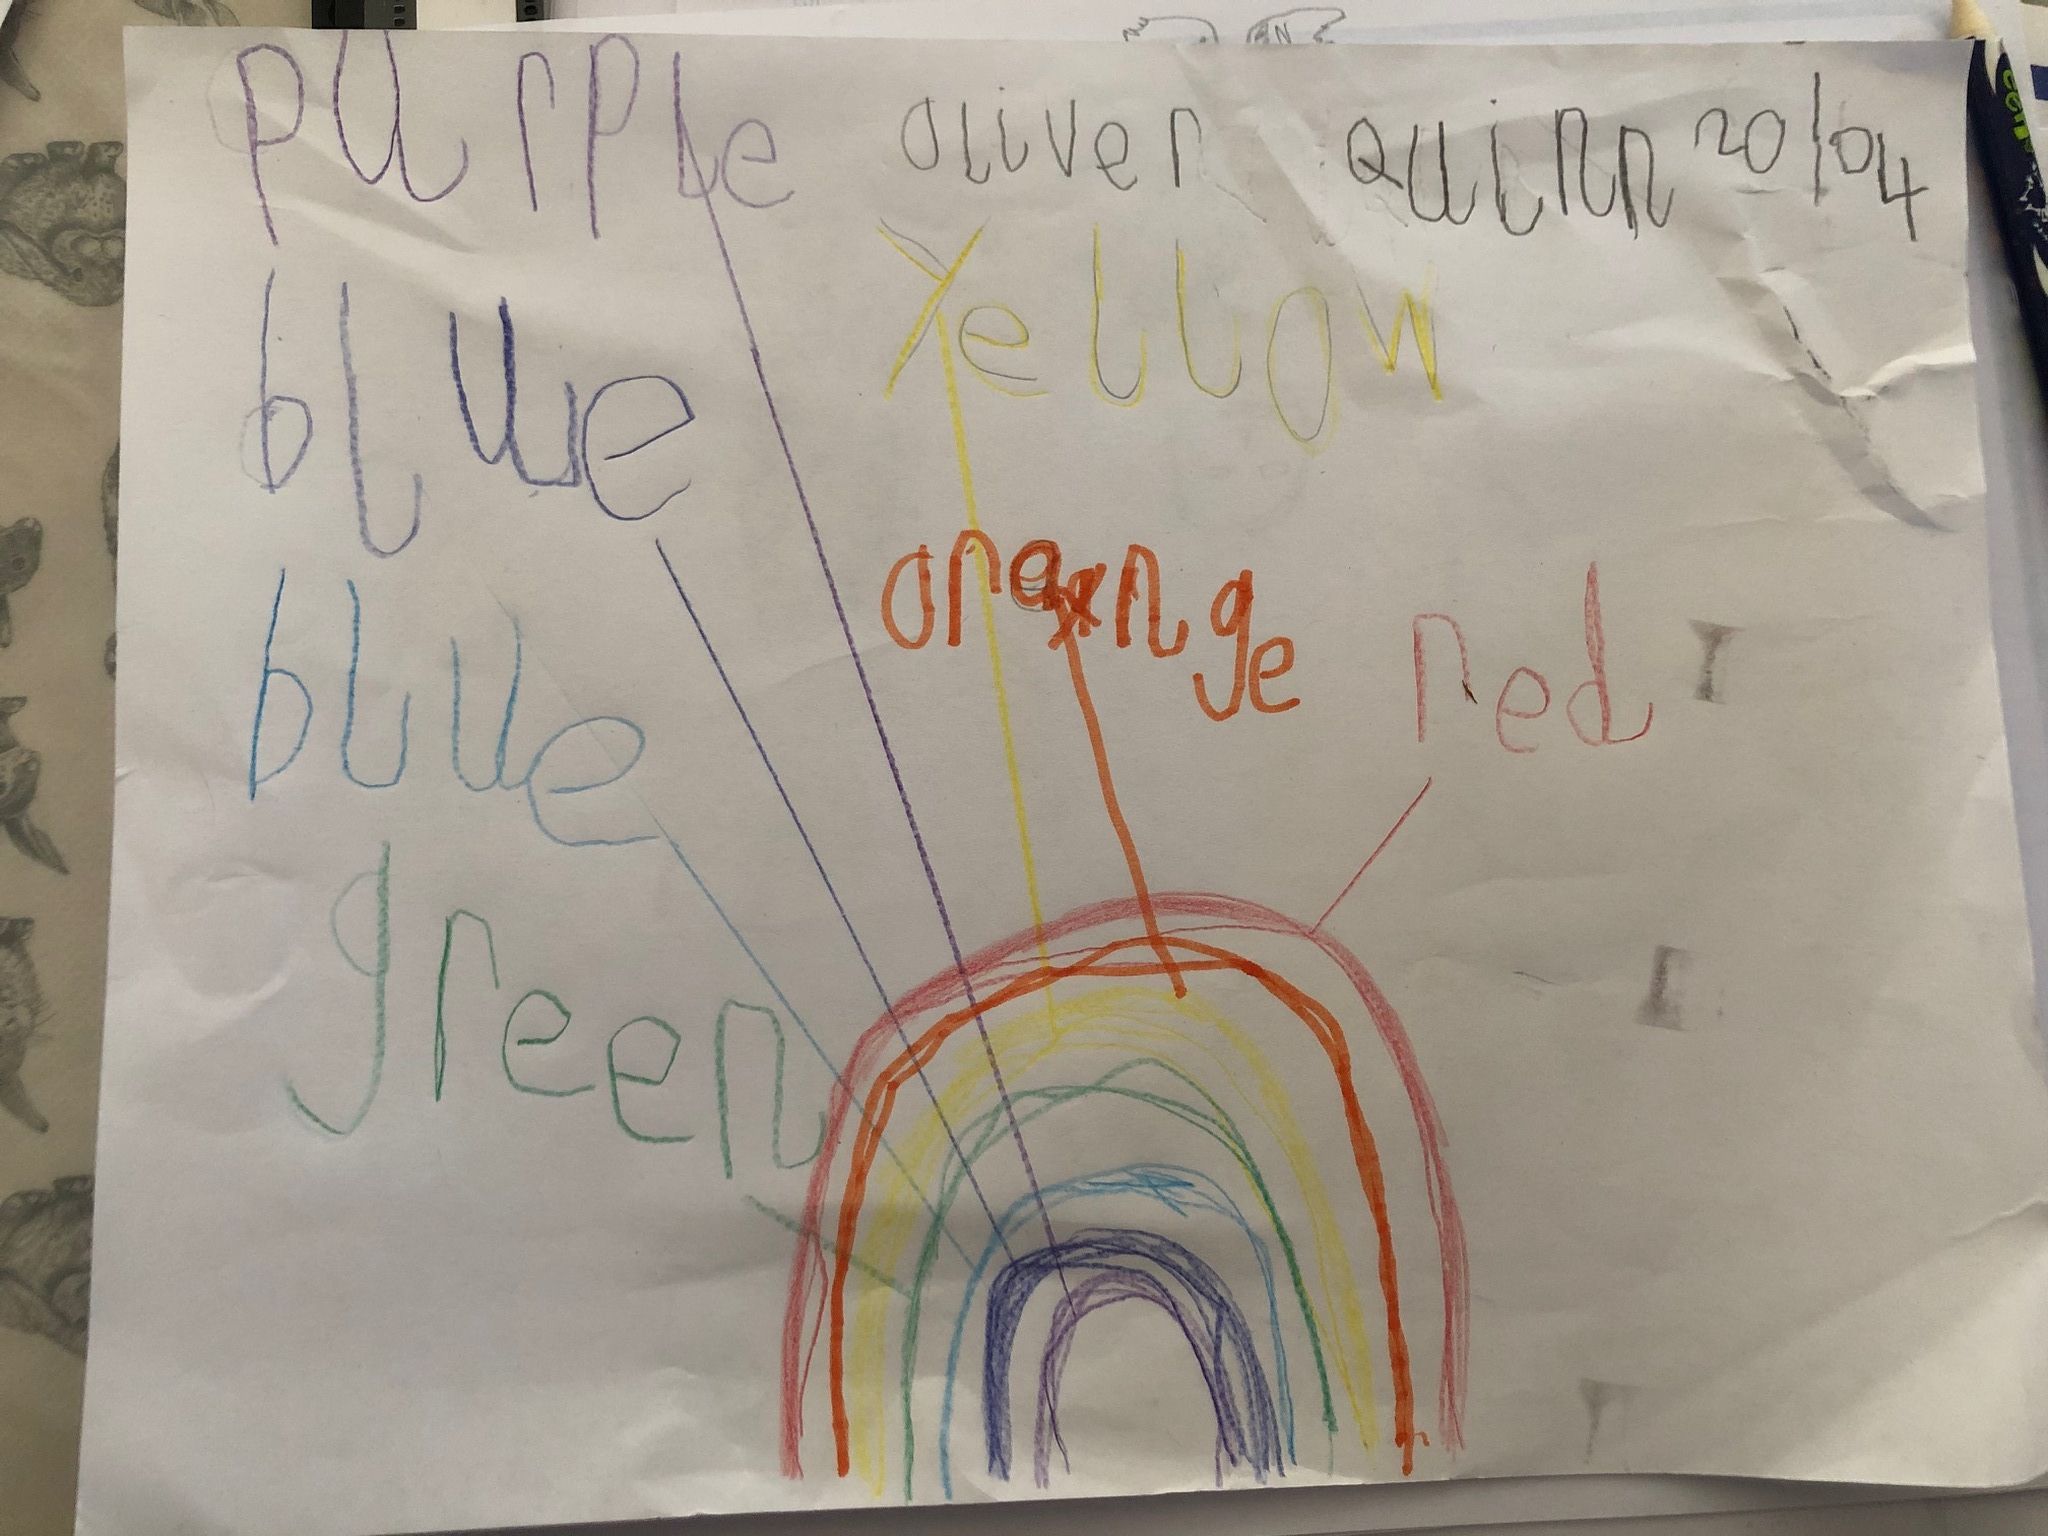 purple
oliver quinn 20/04
blue
yellow
blue
orange
red
green